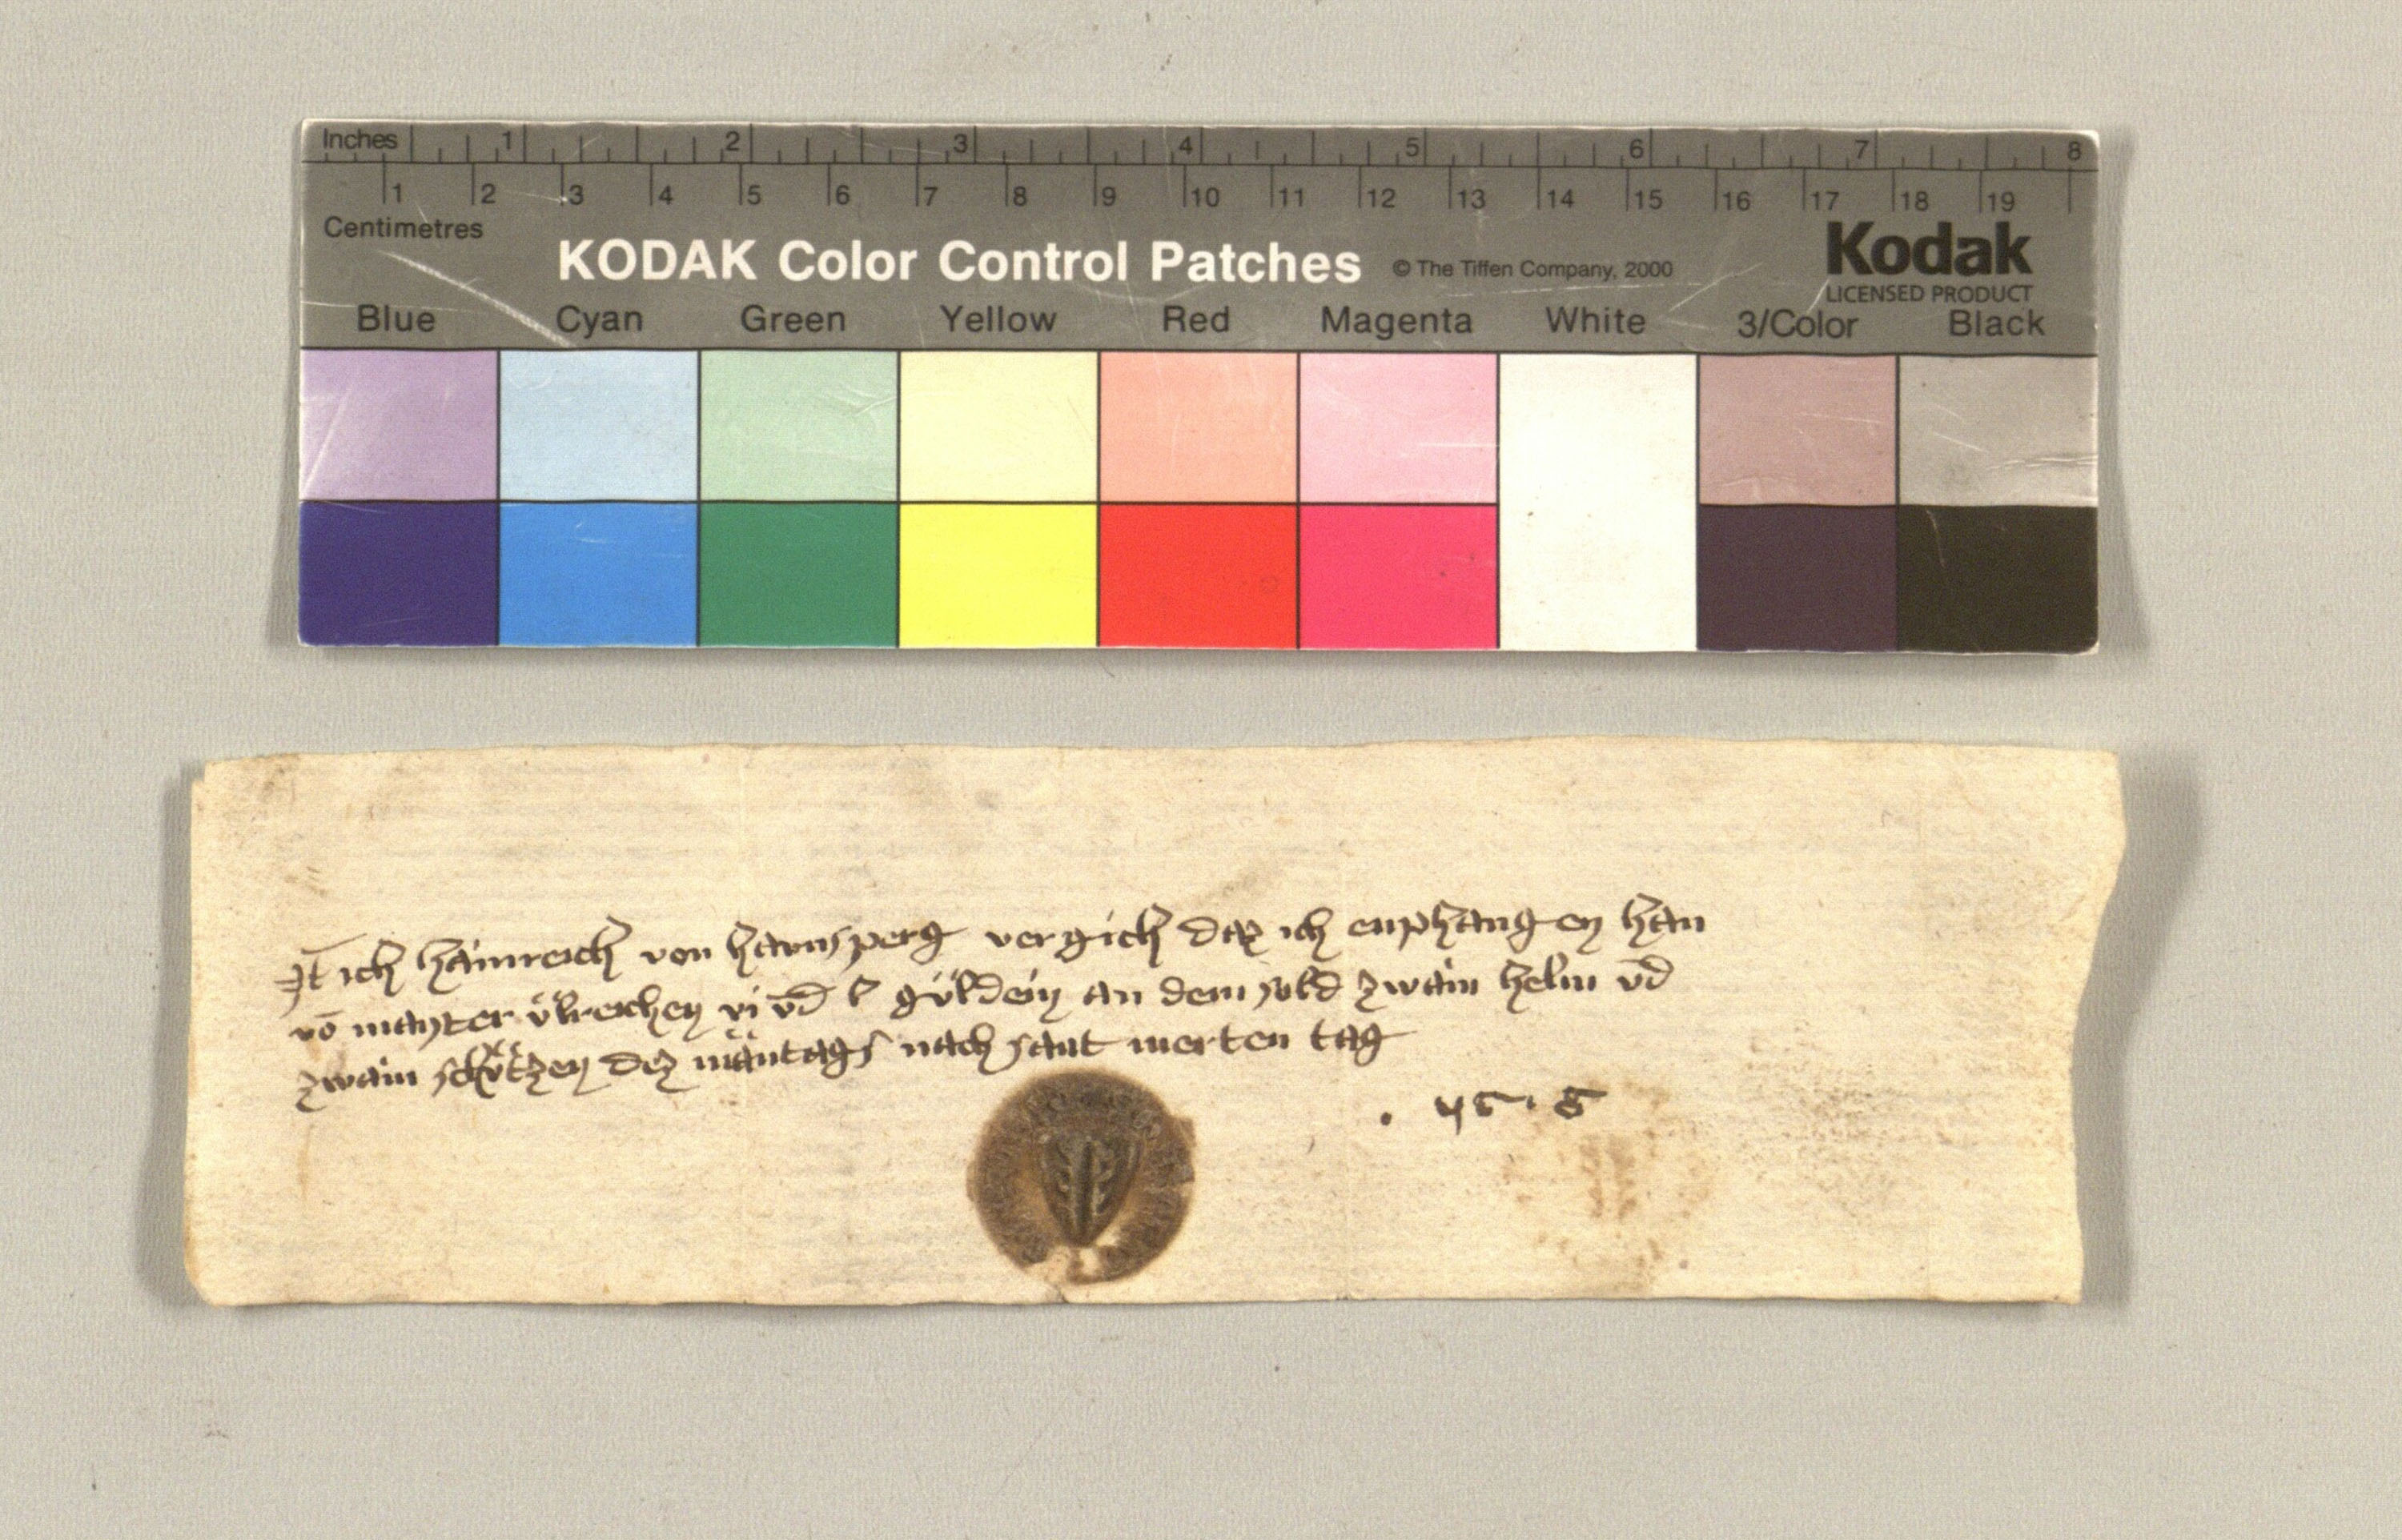 Inches 1 2 3 4 5 6 7 8
1 2 3 4 5 6 7 8 9 10 11 12 13 14 15 16 17 18 19
Centimetres
KODAK Color Control Patches © The Tiffen Company, 2000 Kodak
LICENSED PRODUCT
Blue Cyan Green Yellow Red Magenta White 3/Color Black
It ich hainreich von haunsperg vergich daz ich enphangen han
vō mayster ülreichen vi vn̄d l güldein an dem sold zwain helm vn̄d
zwain schützen dez mäntags nach sant merten tag